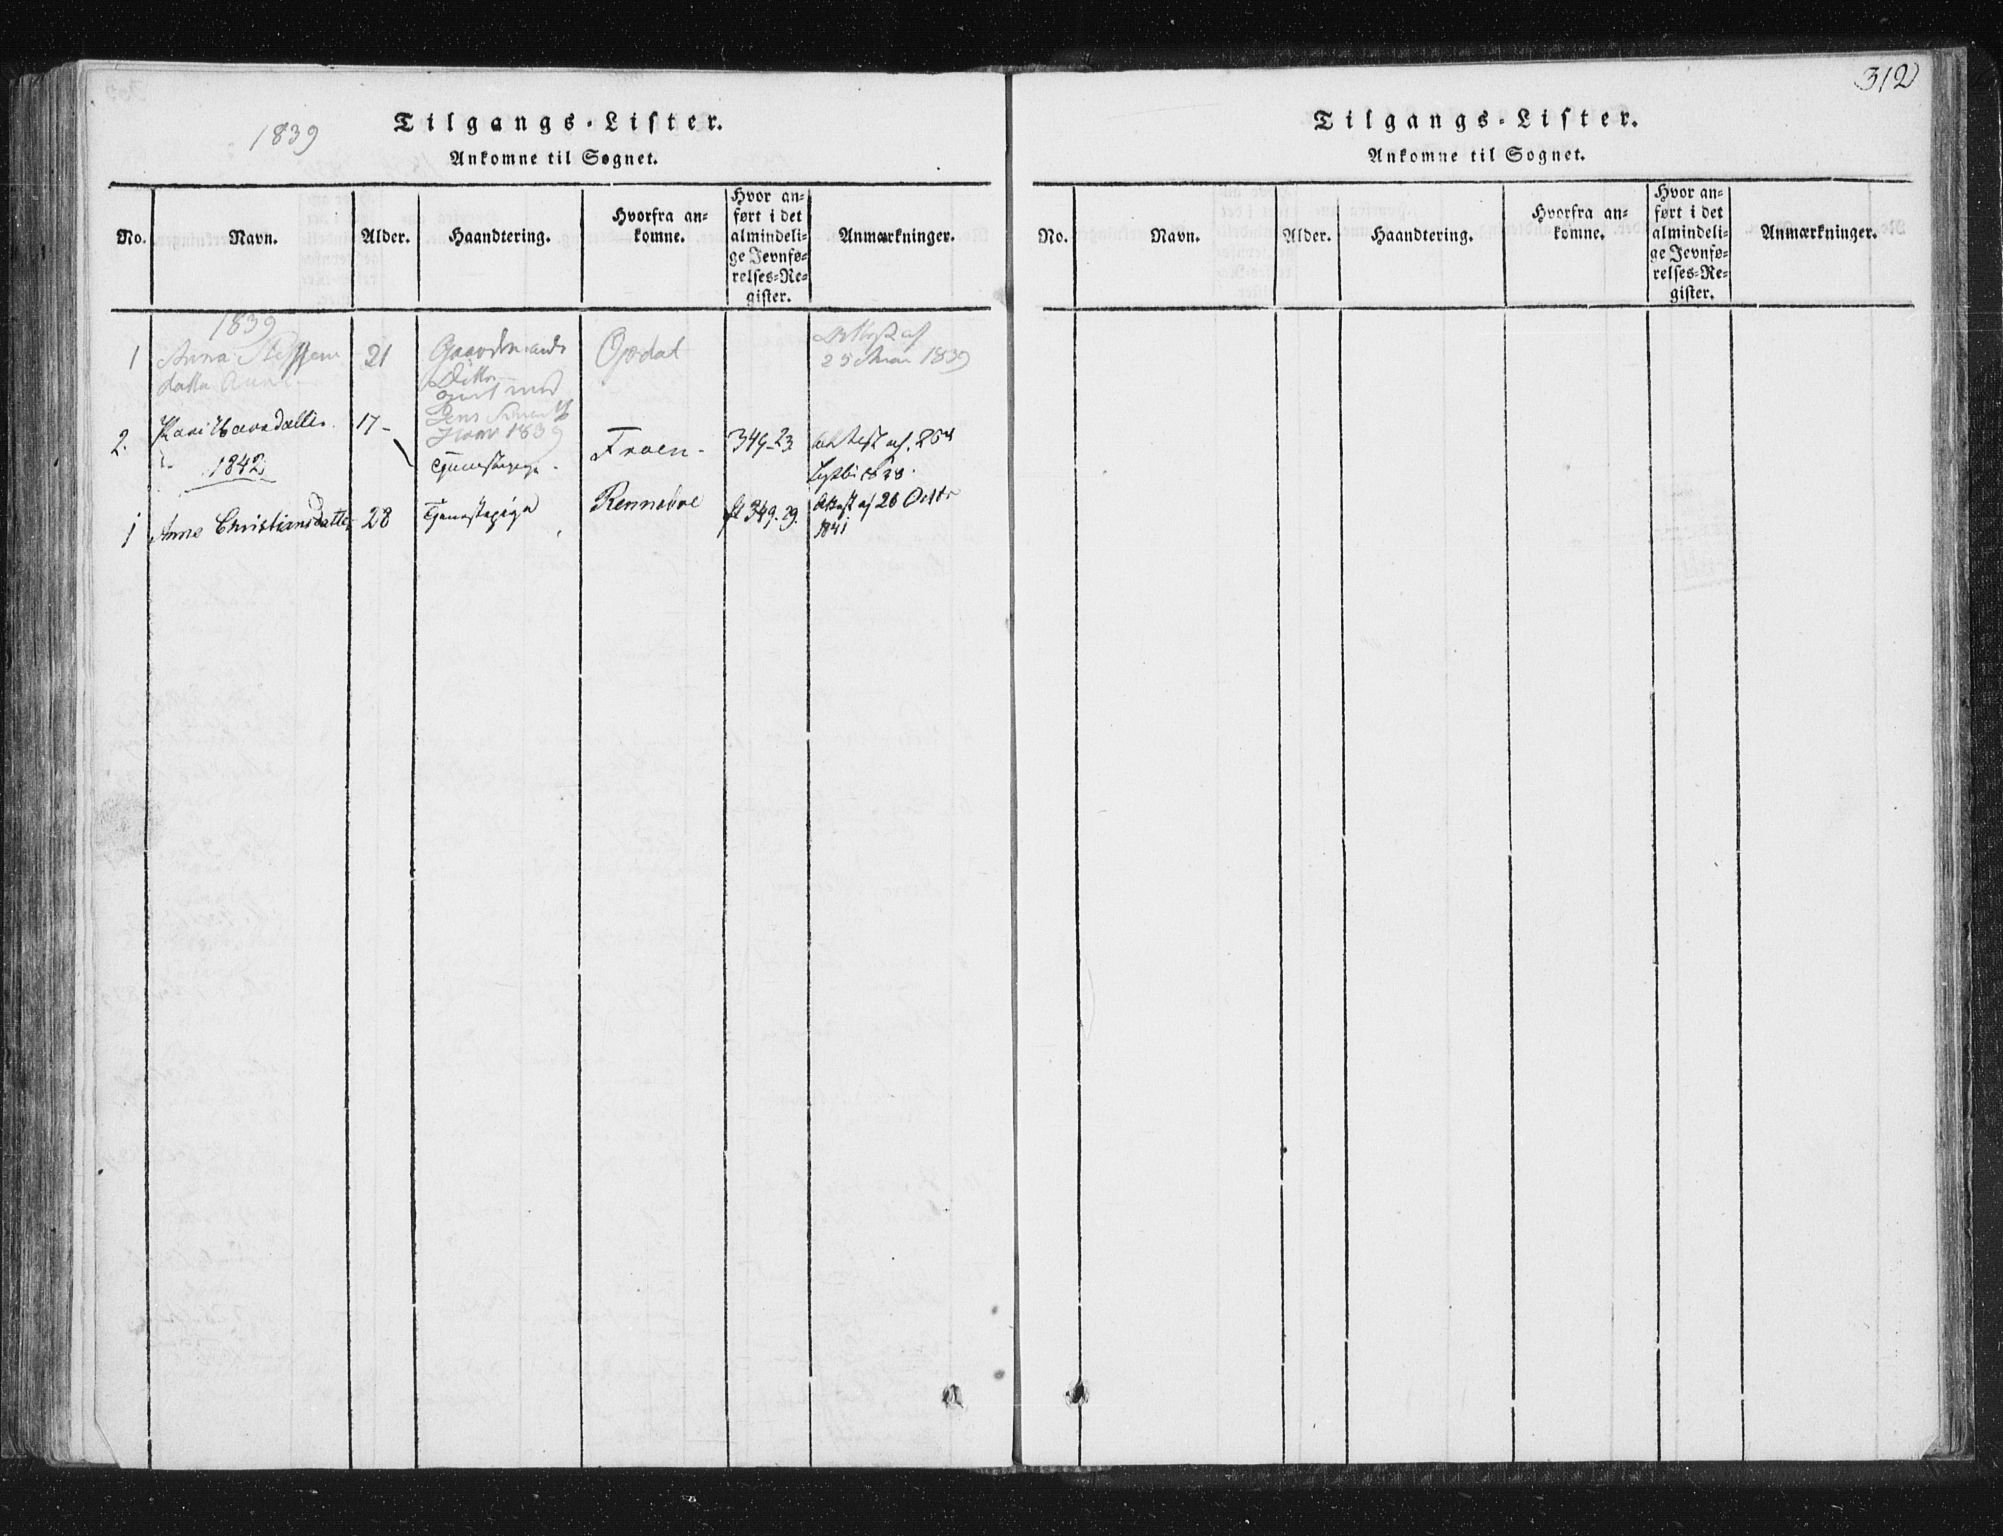 1839
Tilgangs-Lister.
Ankomne til Sognet.
No.
Navn.
Alder.
Haandtering.
Hvorfra an=
komne.
Hvor an=
ført i det
almindeli=
ge Jevnfø=
relses=Re=
gister.
Anmærkninger.
1839
1
Anna
datter
21
Gaardmands
Datter
givt med
Jens
1839
Opdal
Attest af
25 1839
2.
Kari
17-
Tjenestepige.
Froen-
349-23
Attest af 25
1842
1
Anne Christiansdatter
28
Tjenestepige
Renneboe
349.29.
Attest af 20 Octbr
1841
312
Tilgangs-Lister.
Ankomne til Sognet.
No.
Navn.
Alder.
Haandtering.
Hvorfra an=
komne.
Hvor an=
ført i det
almindeli=
ge Jevnfø=
relses=Re=
gister.
Anmærkninger.